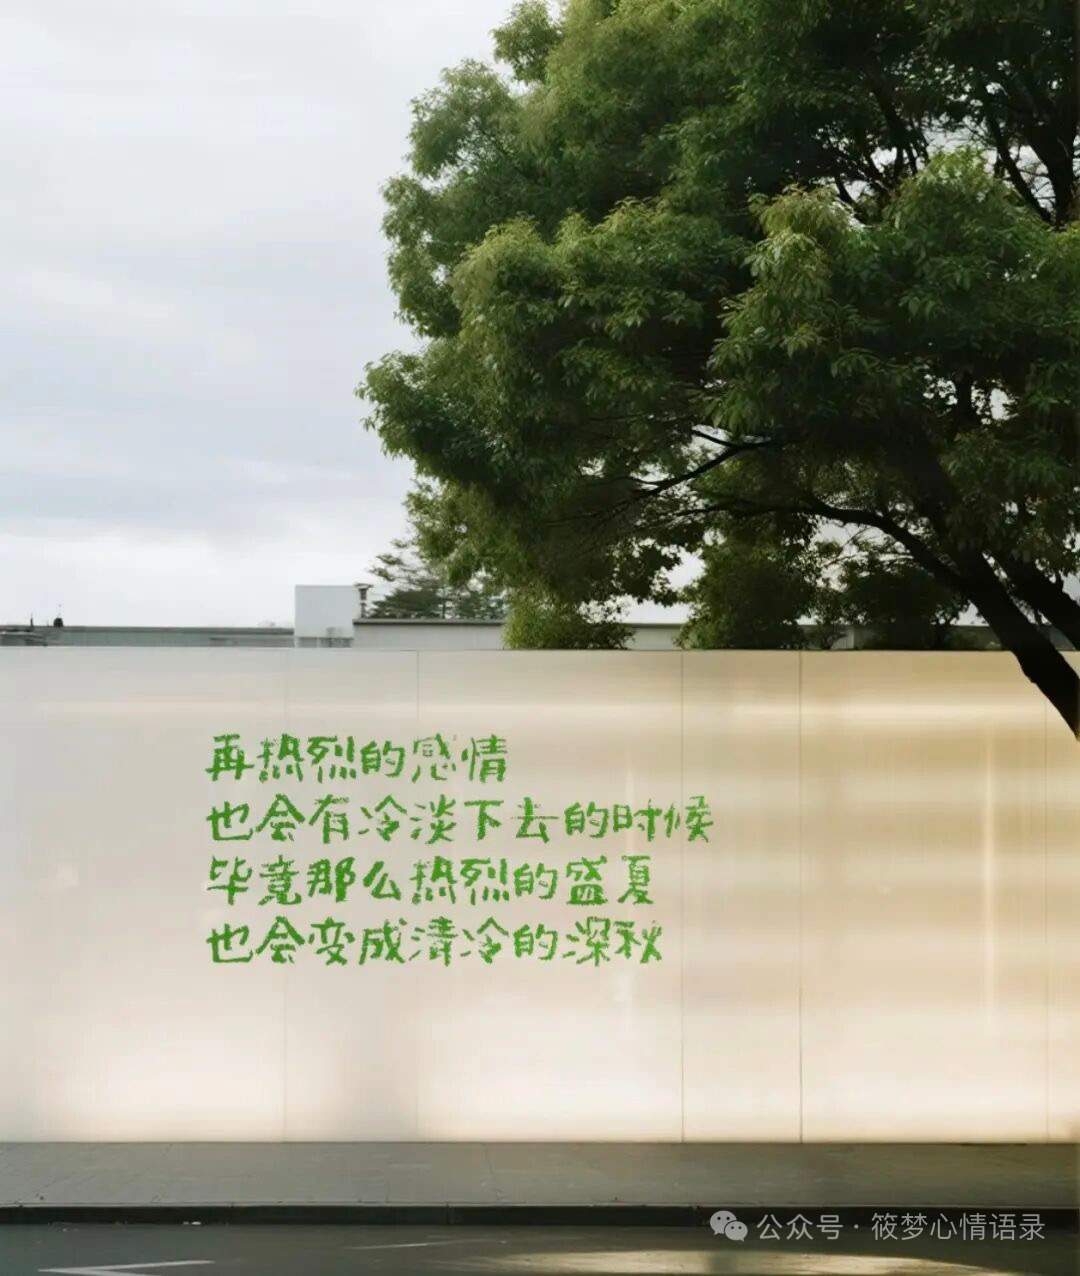 再热烈的感情
也会有冷淡下去的时候
毕竟那么热烈的盛夏
也会变成清冷的深秋
公众号·筱梦心情语录